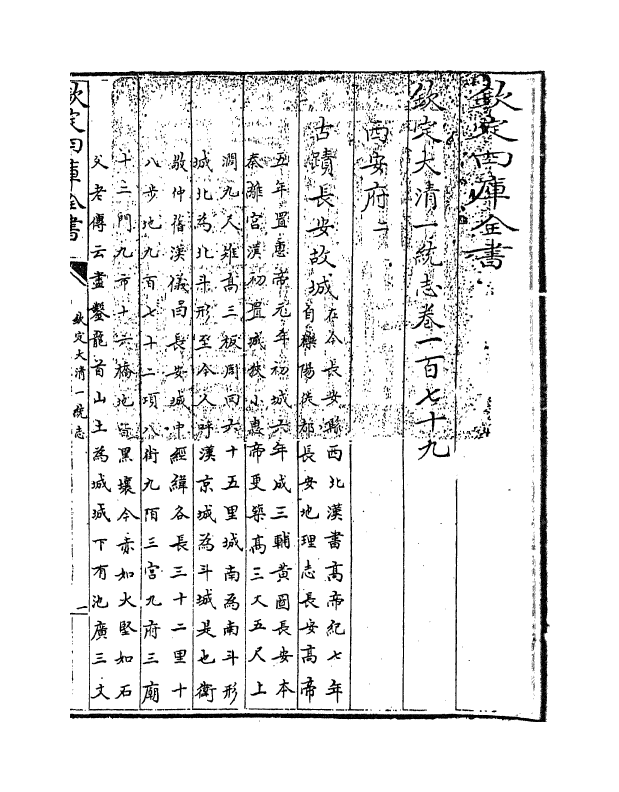 欽定四庫全書
欽定大清一統志卷一百七十九
西安府二
古蹟長安故城在今長安縣西北漢書高帝紀七年
自櫟陽徙都長安地理志長安高帝
五年置惠帝元年初城六年成三輔黄圖長安本
秦離宫漢初置城狹小惠帝更築高三丈五尺上
濶九尺雉高三板周回六十五里城南為南斗形
城北為北斗形至今人呼漢京城為斗城是也衛
敬仲舊漢儀曰長安城中經緯各長三十二里十
八步地九百七十二頃八街九陌三宫九府三廟
十二門九市十六橋地皆黑壤今赤如火堅如石
父老傳云盡鑿龍首山土為城城下有池廣三丈
欽定四庫全書
欽定大清一統志
一